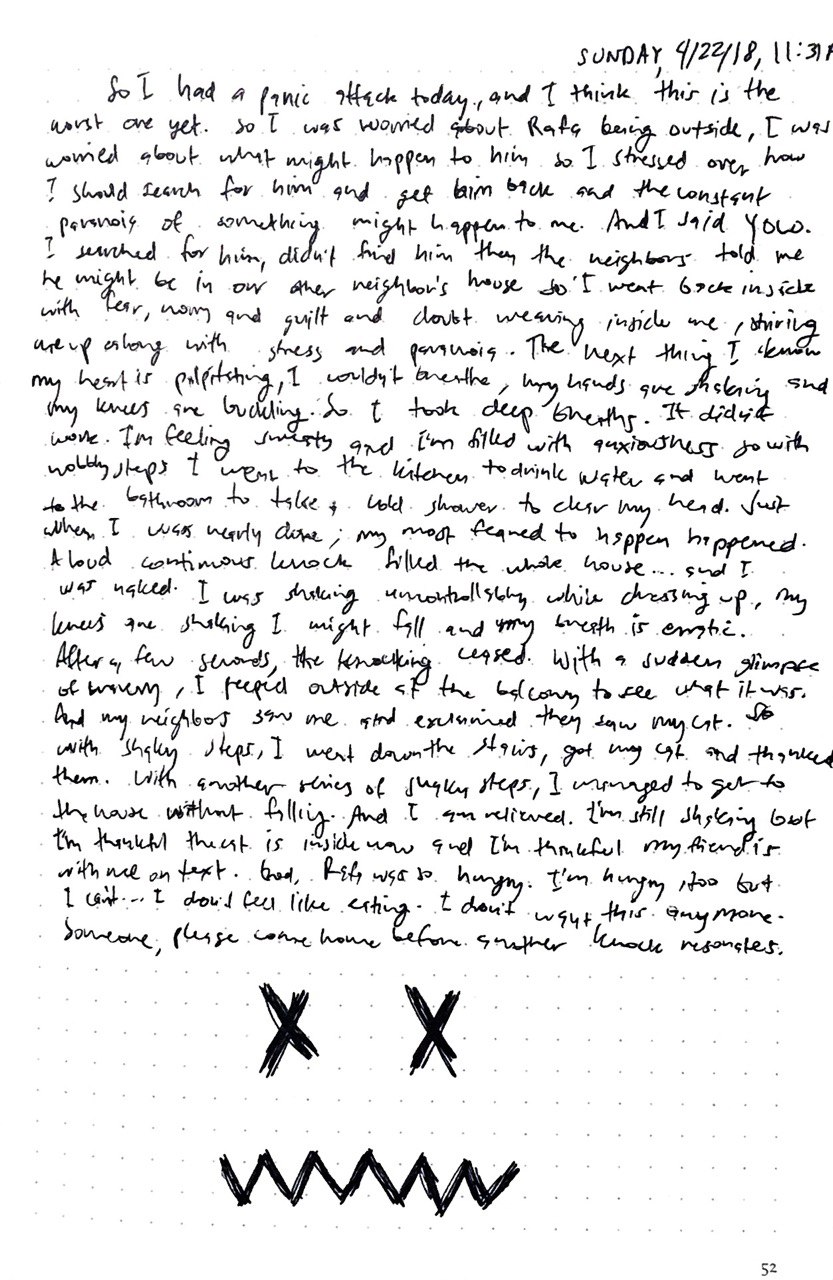 SUNDAY, 4/22/18, 11:31A
So I had a panic attack today, and I think this is the
worst one yet. So I was worried about Rafa being outside, I was
worried about what might happen to him so I stressed over how
I should search for him and get him back and the constant
paranoia of something might happen to me. And I said YOLO.
I searched for him, didn't find him then the neighbors told me
he might be in our other neighbor's house so I went back inside
with fear, worry and guilt and doubt weaving inside me, stirring
me up along with stress and paranoia. The next thing I know
my heart is palpitating, I couldn't breathe, my hands are shaking and
my knees are buckling. So I took deep breaths. It didn't
work. I'm feeling sweaty and I'm filled with anxiousness so with
wobbly steps I went to the kitchen to drink water and went
to the bathroom to take a cold shower to clear my head. Just
when I was nearly done, my most feared to happen happened.
A loud continuous knock filled the whole house... and I
was naked. I was shaking uncontrollably while dressing up, my
knees are shaking I might fall and my breath is erratic.
After a few seconds, the knocking ceased. With a sudden glimpse
of bravery, I peeped outside at the balcony to see what it was.
And my neighbors saw me and exclaimed they saw my cat. So
with shaky steps, I went down the stairs, got my cat and thanked
them. With another series of shaky steps, I managed to get to
the house without falling. And I am relieved. I'm still shaking but
I'm thankful the cat is inside now and I'm thankful my friend is
with me on text. God, Rafa was so hungry. I'm hungry, too but
I can't... I don't feel like eating. I don't want this anymore.
Someone, please come home before another knock resonates.
52